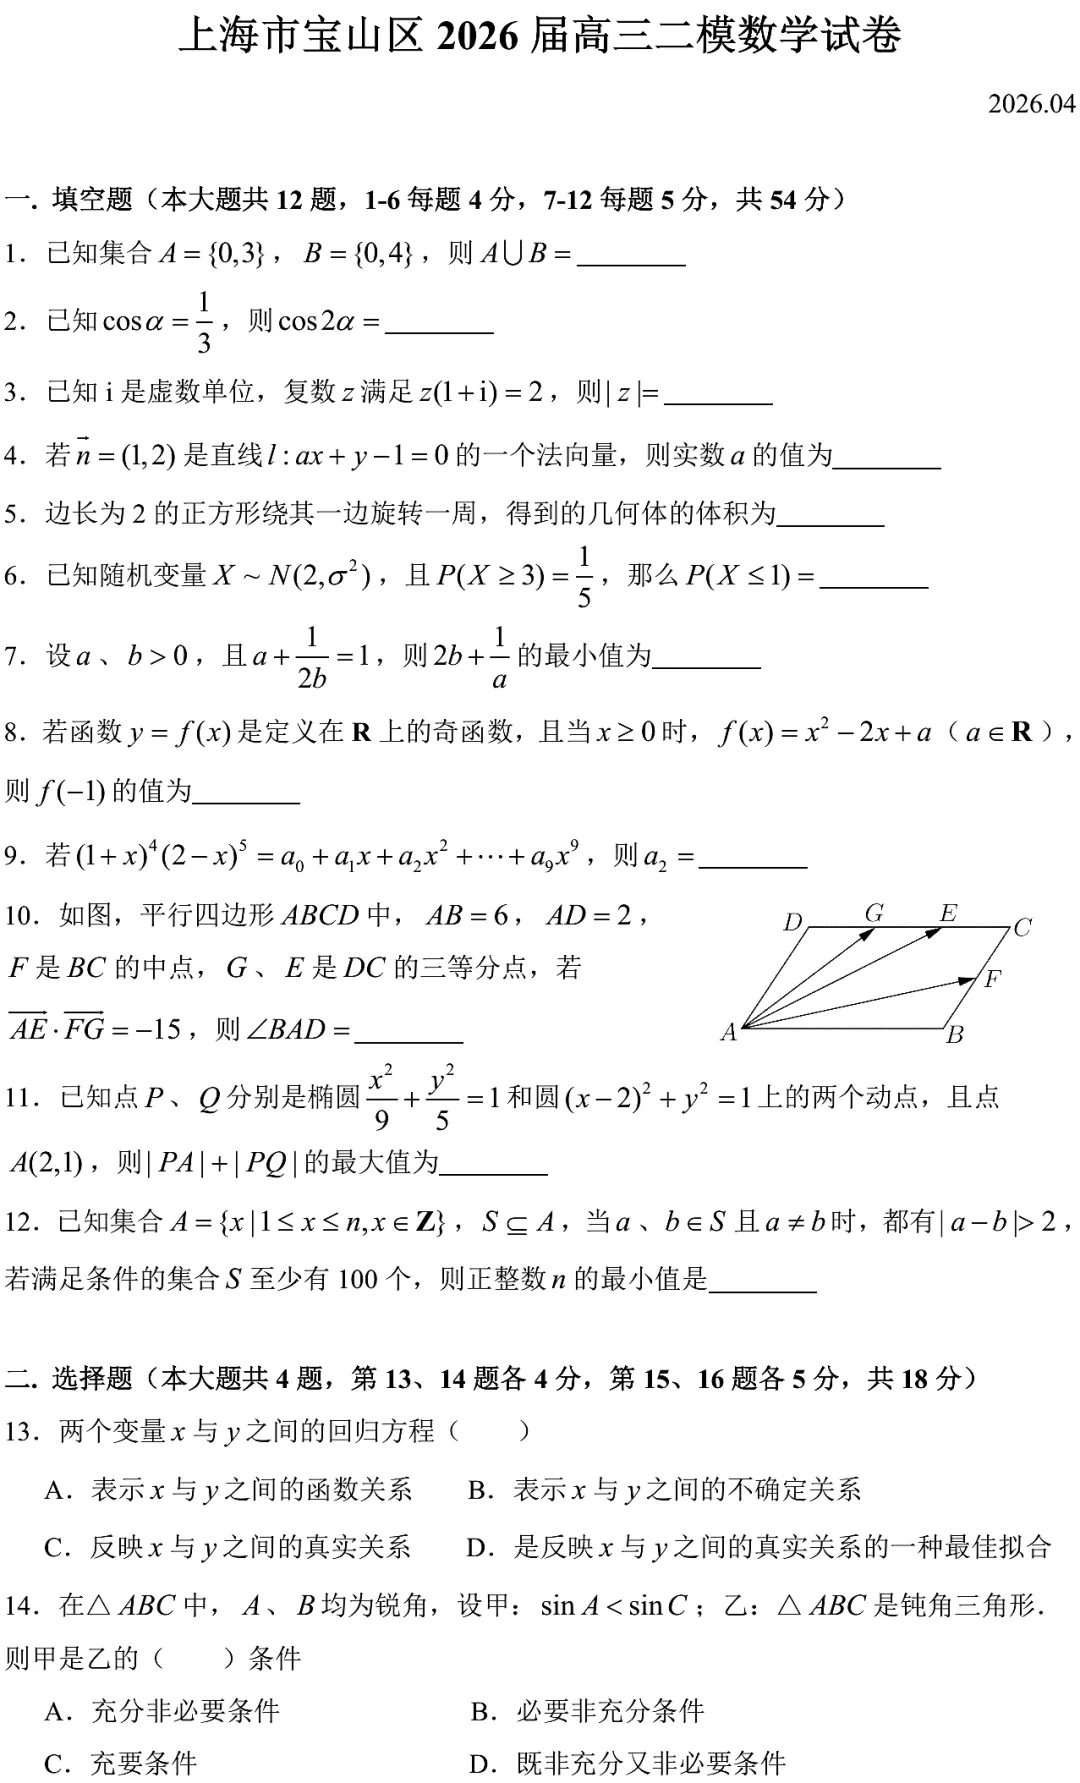 上海市宝山区 2026 届高三二模数学试卷
2026.04
一. 填空题（本大题共 12 题，1-6 每题 4 分，7-12 每题 5 分，共 54 分）
1. 已知集合 A = {0,3}，B = {0,4}，则 A⋃B = ________
2. 已知 cosα = 1/3，则 cos2α = ________
3. 已知 i 是虚数单位，复数 z 满足 z(1+i) = 2，则| z |= ________
4. 若 n⃗ = (1,2) 是直线 l : ax + y − 1 = 0 的一个法向量，则实数 a 的值为________
5. 边长为 2 的正方形绕其一边旋转一周，得到的几何体的体积为________
6. 已知随机变量 X ~ N(2,σ²)，且 P(X ≥ 3) = 1/5，那么 P(X ≤ 1) = ________
7. 设 a、b > 0，且 a + 1/(2b) = 1，则 2b + 1/a 的最小值为________
8. 若函数 y = f(x) 是定义在 R 上的奇函数，且当 x ≥ 0 时，f(x) = x² − 2x + a（a ∈ R），
则 f(−1) 的值为________
9. 若 (1+x)⁴(2−x)⁵ = a₀ + a₁x + a₂x² + ⋯ + a₉x⁹，则 a₂ = ________
10. 如图，平行四边形 ABCD 中，AB = 6，AD = 2，
F 是 BC 的中点，G、E 是 DC 的三等分点，若
AE→ · FG→ = −15，则 ∠BAD = ________
D G E C
F
A B
11. 已知点 P、Q 分别是椭圆 x²/9 + y²/5 = 1 和圆 (x−2)² + y² = 1 上的两个动点，且点
A(2,1)，则| PA | + | PQ | 的最大值为________
12. 已知集合 A = {x | 1 ≤ x ≤ n, x ∈ Z}，S ⊆ A，当 a、b ∈ S 且 a ≠ b 时，都有| a − b |> 2，
若满足条件的集合 S 至少有 100 个，则正整数 n 的最小值是________
二. 选择题（本大题共 4 题，第 13、14 题各 4 分，第 15、16 题各 5 分，共 18 分）
13. 两个变量 x 与 y 之间的回归方程（  ）
A. 表示 x 与 y 之间的函数关系 B. 表示 x 与 y 之间的不确定关系
C. 反映 x 与 y 之间的真实关系 D. 是反映 x 与 y 之间的真实关系的一种最佳拟合
14. 在△ ABC 中，A、B 均为锐角，设甲：sin A < sin C；乙：△ ABC 是钝角三角形.
则甲是乙的（  ）条件
A. 充分非必要条件 B. 必要非充分条件
C. 充要条件 D. 既非充分又非必要条件